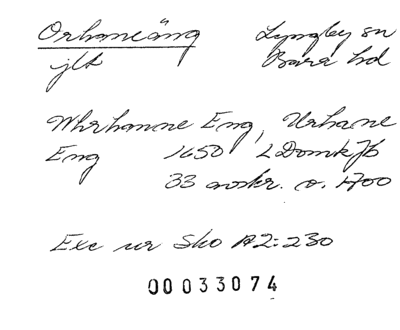 Orhaneäng Lyngby sn
jlt Bara hd
Whrhanne Eng, Urhane
Eng 1650 LDomkJb
33 avskr. o. 1700
Exc ur Sko A2:230
00033074